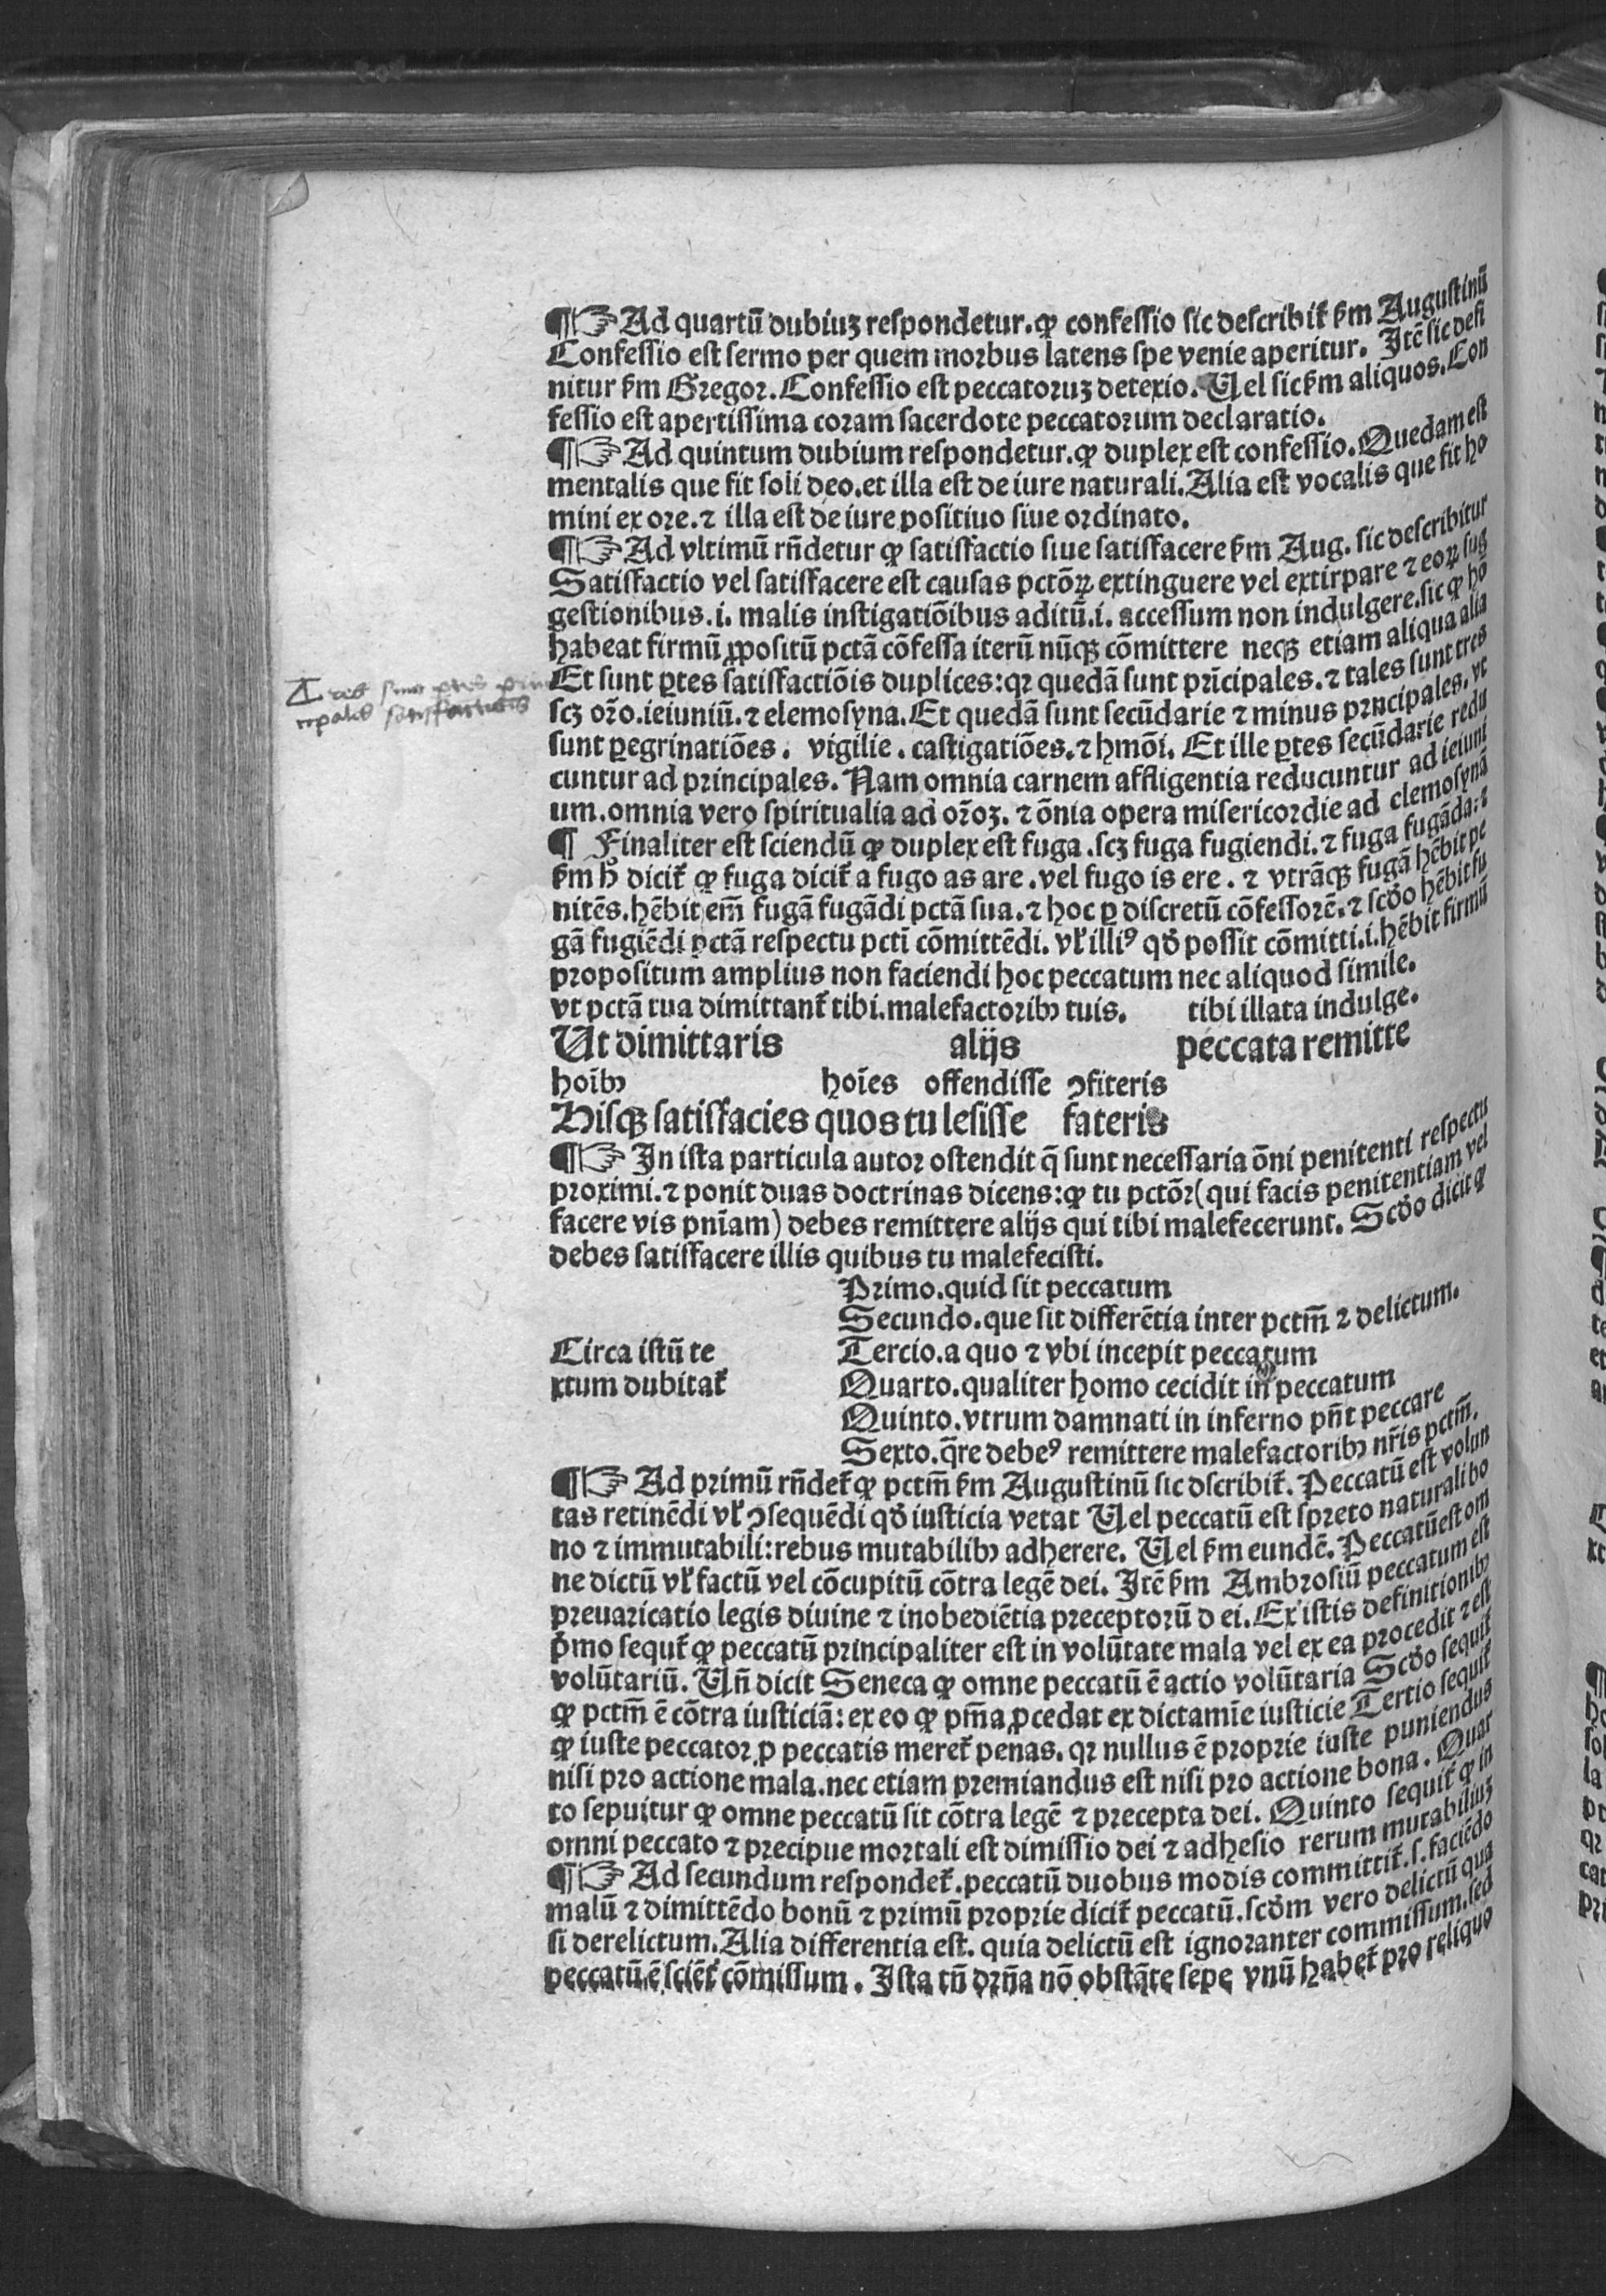 ¶☞ Ad quartū dubiuꝫ respondetur.ꝙ confessio sic describit᷑ ẜm Augustinū
Confessio est sermo per quem morbus latens spe venie aperitur. Itē sic defi
nitur ẜm Gregor. Confessio est peccatoruꝫ detexio. Uel sic ẜm aliquos. Con
fessio est apertissima coram sacerdote peccatorum declaratio.
¶☞ Ad quintum dubium respondetur.ꝙ duplex est confessio. Quedam est
mentalis que fit soli deo.et illa est de iure naturali. Alia est vocalis que fit ho
mini ex ore.⁊ illa est de iure positiuo siue ordinato.
¶☞ Ad vltimū rn̄detur ꝙ satisfactio siue satisfacere ẜm Aug. sic describitur
Satisfactio vel satisfacere est causas pctōꝝ extinguere vel extirpare ⁊ eoꝝ sug
gestionibus.i. malis instigatiōibus aditū.i. accessum non indulgere.sic ꝙ ho
habeat firmū ꝓpositū pctā cōfessa iterū nūqꝫ cōmittere neqꝫ etiam aliqua alia
Et sunt ꝑtes satisfactiōis duplices:qꝛ quedā sunt pr̄icipales.⁊ tales sunt tres
scꝫ or̄o.ieiuniū.⁊ elemosyna. Et quedā sunt secūdarie ⁊ minus prncipales.vt
sunt ꝑegrinatiōes. vigilie. castigatiōes.⁊ hmōi. Et ille ꝑtes secūdarie redu
cuntur ad principales. Nam omnia carnem affligentia reducuntur ad ieiuni
um.omnia vero spiritualia ad or̄oꝫ. ⁊ ōnia opera misericordie ad elemosynā
¶ Finaliter est sciendū ꝙ duplex est fuga .scꝫ fuga fugiendi.⁊ fuga fugāda:⁊
ẜm ħ dicit᷑ ꝙ fuga dicit᷑ a fugo as are .vel fugo is ere . ⁊ vtrāqꝫ fugā hēbit pe
nitēs.hēbit em̄ fugā fugādi pctā sua.⁊ hoc ꝑ discretū cōfessorē.⁊ scd̄o hēbit fu
gā fugiēdi pctā respectu pcti cōmittēdi. vl̓ illiꝰ qd̓ possit cōmitti.i.hēbit firmū
propositum amplius non faciendi hoc peccatum nec aliquod simile.
vt pctā tua dimittant᷑ tibi.malefactoribꝫ tuis. tibi illata indulge.
Ut dimittaris alijs peccata remitte
hoībꝫ hoīes offendisse ꝯfiteris
Hisqꝫ satisfacies quos tu lesisse fateris
¶☞ In ista particula autor ostendit q̄ sunt necessaria ōni penitenti respectu
proximi.⁊ ponit duas doctrinas dicens:ꝙ tu pctōr (qui facis penitentiam vel
facere vis pn̄iam) debes remittere alijs qui tibi malefecerunt. Scd̄o dicit ꝙ
debes satisfacere illis quibus tu malefecisti.
Primo.quid sit peccatum
Secundo.que sit differētia inter pctm̄ ⁊ delictum.
Circa istū te Tercio.a quo ⁊ vbi incepit peccatum
xtum dubitat᷑ Quarto.qualiter homo cecidit in peccatum
Quinto.vtrum damnati in inferno pn̄t peccare
Sexto.q̄re debeꝰ remittere malefactoribꝫ nr̄is pctm̄.
¶☞ Ad primū rn̄det᷑ ꝙ pctm̄ ẜm Augustinū sic dscribit᷑. Peccatū est volun
tas retinēdi vl̓ ꝯsequēdi qd̓ iusticia vetat Uel peccatū est spreto naturali bo
no ⁊ immutabili:rebus mutabilibꝫ adherere. Uel ẜm eundē. Peccatū est om
ne dictū vl̓ factū vel cōcupitū cōtra legē dei. Itē ẜm Ambrosiū peccatum est
preuaricatio legis diuine ⁊ inobediētia preceptorū d ei. Ex istis definitionibꝫ
p̓mo sequit᷑ ꝙ peccatū principaliter est in volūtate mala vel ex ea procedit ⁊ est
volūtariū. Un̄ dicit Seneca ꝙ omne peccatū ē actio volūtaria Scd̄o sequit᷑
ꝙ pctm̄ ē cōtra iusticiā: ex eo ꝙ pm̄a ꝓcedat ex dictamīe iusticie Tertio sequit᷑
ꝙ iuste peccator ꝓ peccatis meret᷑ penas. qꝛ nullus ē proprie iuste puniendus
nisi pro actione mala.nec etiam premiandus est nisi pro actione bona. Quar
to sepuitur ꝙ omne peccatū sit cōtra legē ⁊ precepta dei. Quinto sequit᷑ ꝙ in
omni peccato ⁊ precipue mortali est dimissio dei ⁊ adhesio rerum mutabiliuꝫ
¶☞ Ad secundum respondet᷑.peccatū duobus modis committit᷑.s.faciēdo
malū ⁊ dimittēdo bonū ⁊ primū proprie dicit᷑ peccatū.scd̓m vero delictū qua
si derelictum. Alia differentia est. quia delictū est ignoranter commissum.sed
peccatū ē sciēt᷑ cōmissum. Ista tn̄ dr̄n̄a nō obstāte sepe vnū habet᷑ pro reliquo